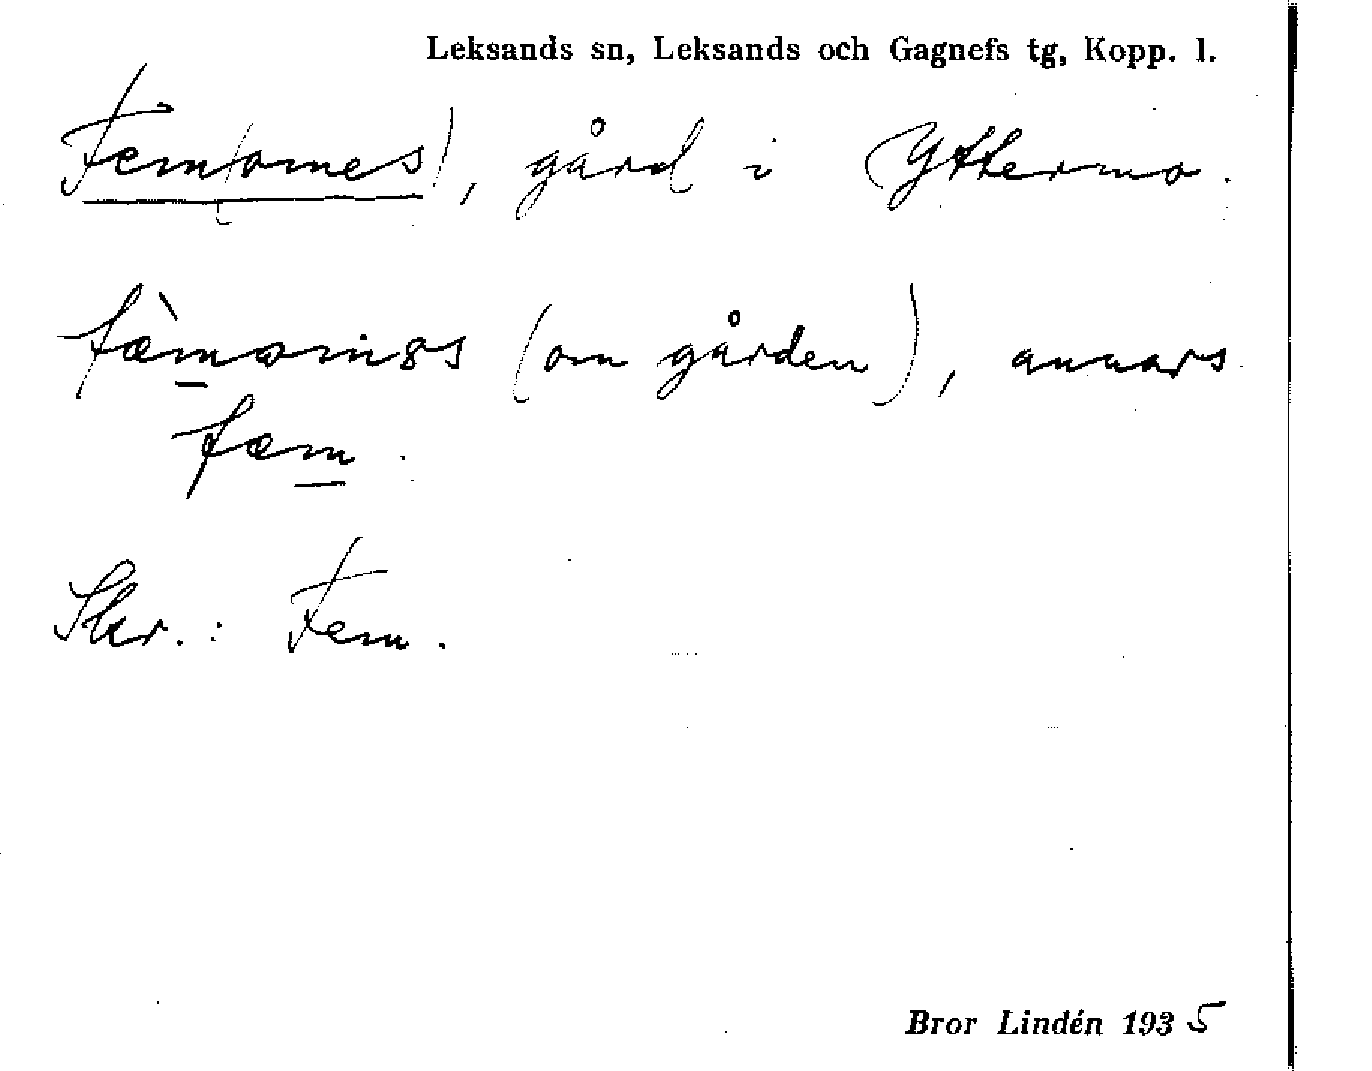 Leksands sn, Leksands och Gagnefs tg, Kopp. l.
Fem(ornes), gård i Yttermo.
(om gården), annars
fæm.
Skr.: Fem.
Bror Lindén 1935